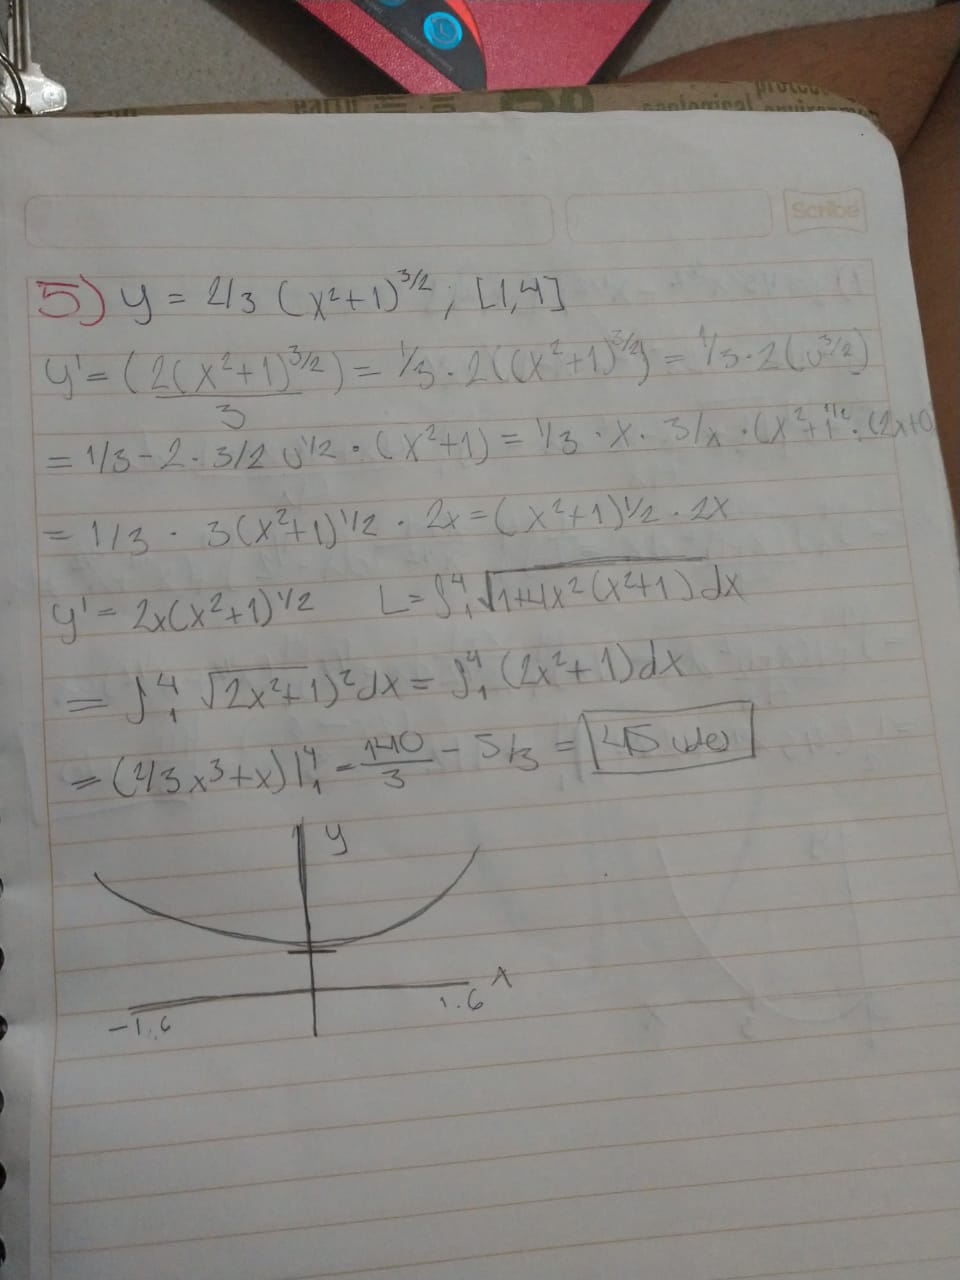 Scribe
5) y = 2/3 (x²+1)^3/2 ; [1,4]
y' = (2(x²+1)^3/2 / 3) = 1/3 · 2((x²+1)^3/2) = 1/3 · 2(u^3/2)
= 1/3 - 2 · 3/2 u^1/2 · (x²+1) = 1/3 · x · 3/x · (x²+1^1/2 · (2x+0)
= 1/3 · 3(x²+1)^1/2 · 2x = (x²+1)^1/2 · 2x
y' = 2x(x²+1)^1/2 L = ∫₁⁴ √(1+4x²(x²+1)) dx
= ∫₁⁴ √(2x²+1)² dx = ∫₁⁴ (2x²+1) dx
= (2/3 x³+x)|₁⁴ = 140/3 - 5/3 = 45
y
x
-1.6 1.6